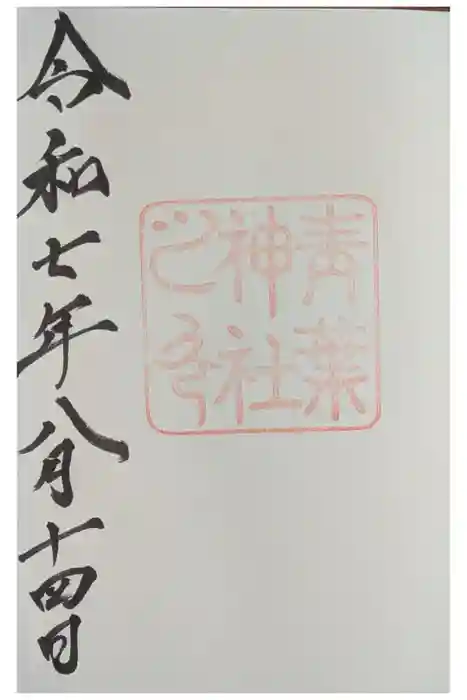 青葉
神社
之印
令和七年八月十四日